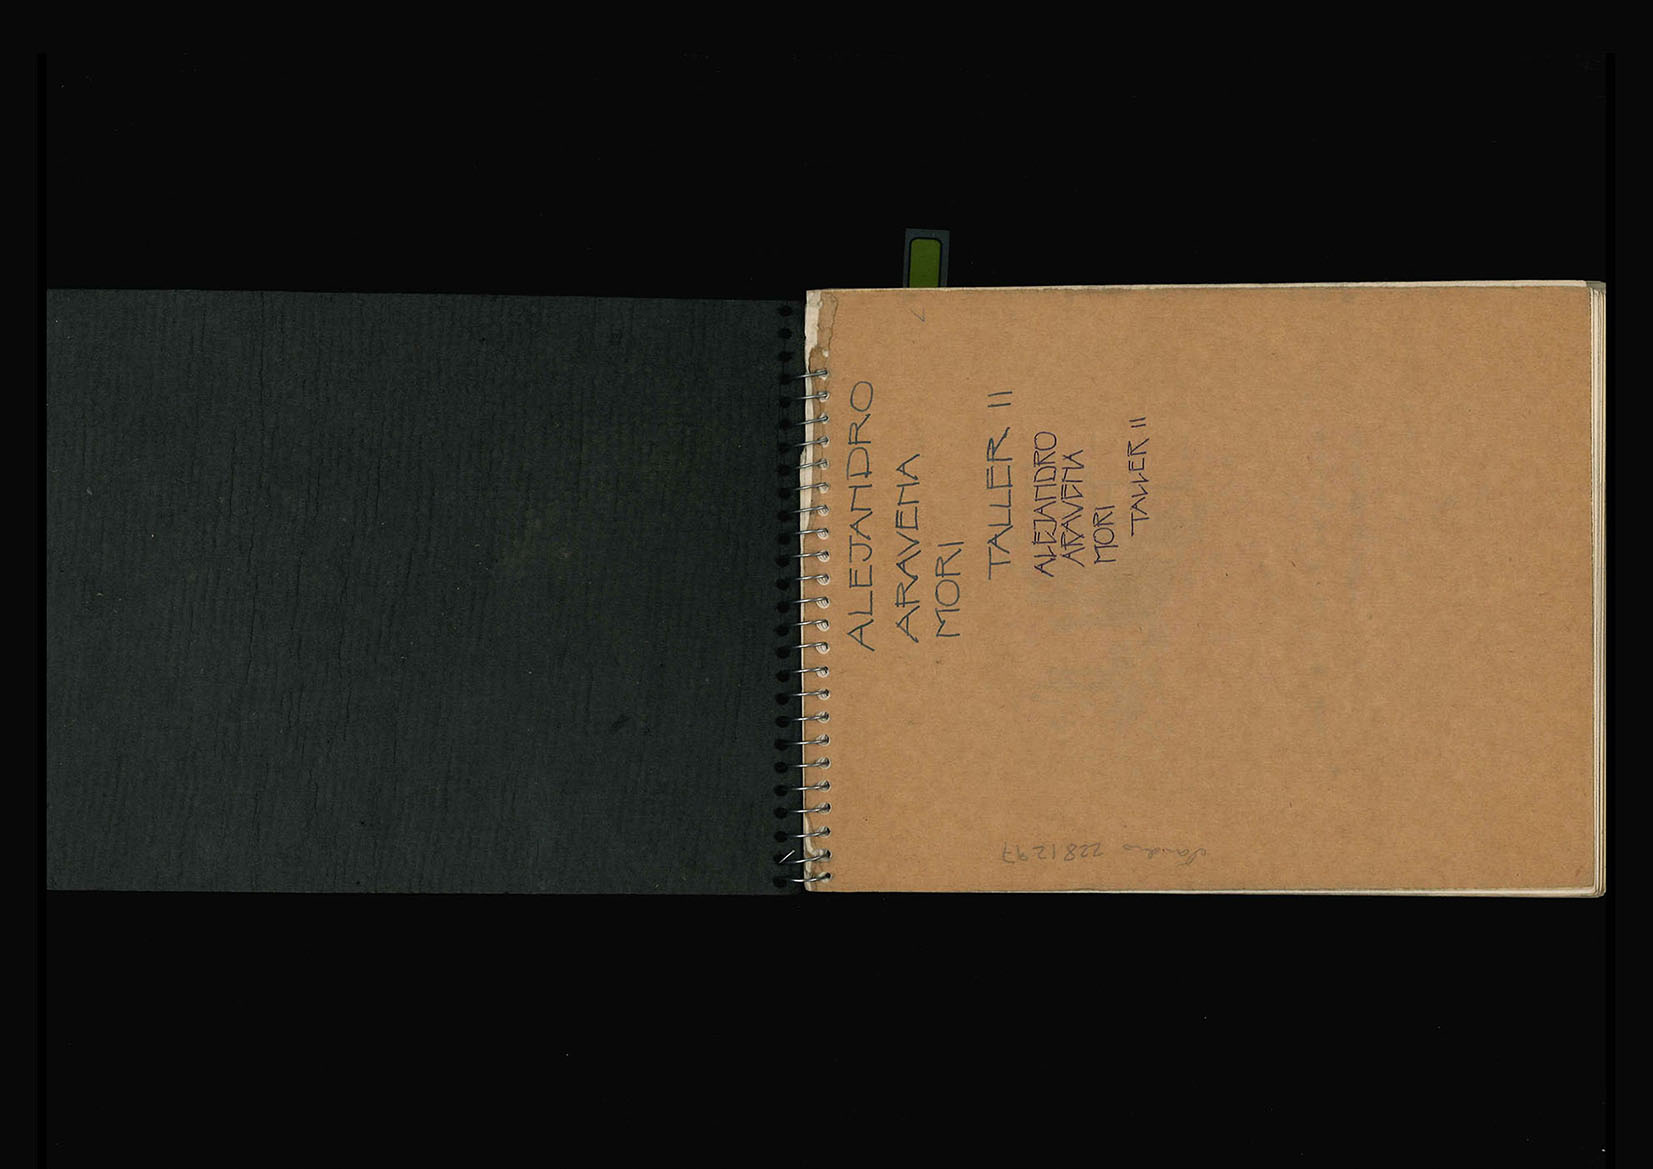 ALEJANDRO
ARAVENA
MORI
TALLER II
ALEJANDRO
ARAVENA
MORI
TALLER II
2281297